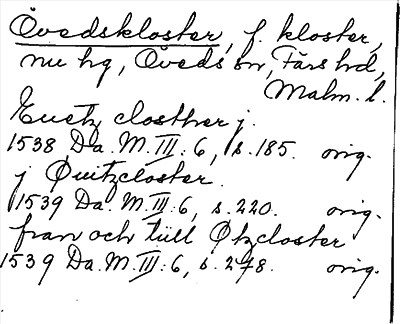 Övedskloster, f. kloster,
nu hg, Öveds sn, Färs hrd,
Malm. l.
Euetz closther j.
1538 Da. M. III: 6, s. 185. orig.
j Øuitzcloster.
1539 Da. M. III: 6, s. 220. orig.
fran och till Øtzcloster
1539 Da. M. III: 6, s. 278. orig.